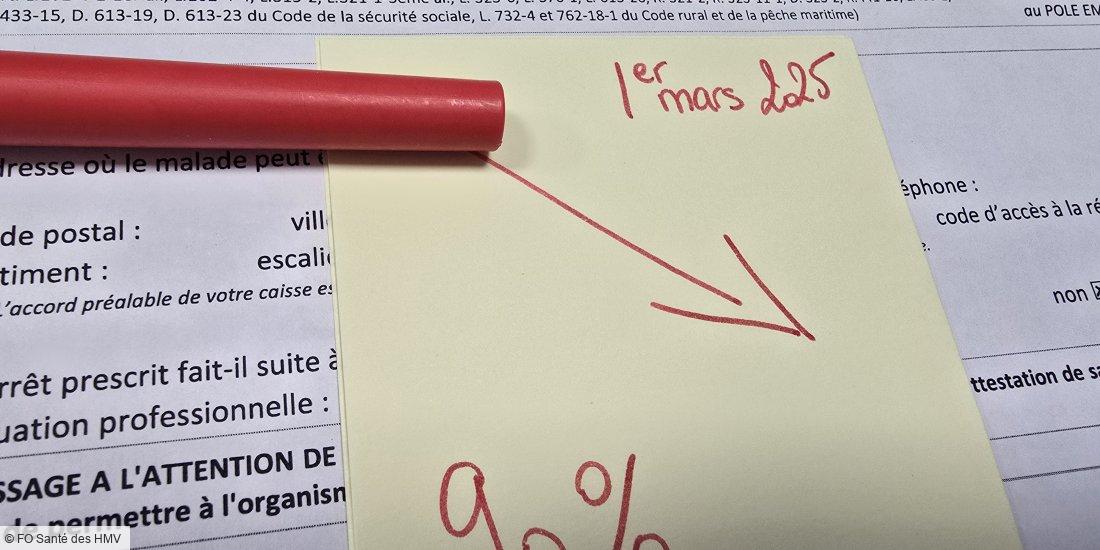 433-15, D. 613-19, D. 613-23 du Code de la sécurité sociale, L. 732-4 et 762-18-1 du Code rural et de la pêche maritime)
au POLE EM
1er mars 2025
dresse où le malade peut
éphone :
de postal :
vill
code d'accès à la ré
timent :
escali
L'accord préalable de votre caisse es
non
rrêt prescrit fait-il suite à
ttestation de sa
uation professionnelle :
SSAGE A L'ATTENTION DE
permettre à l'organism
90%
© FO Santé des HMV